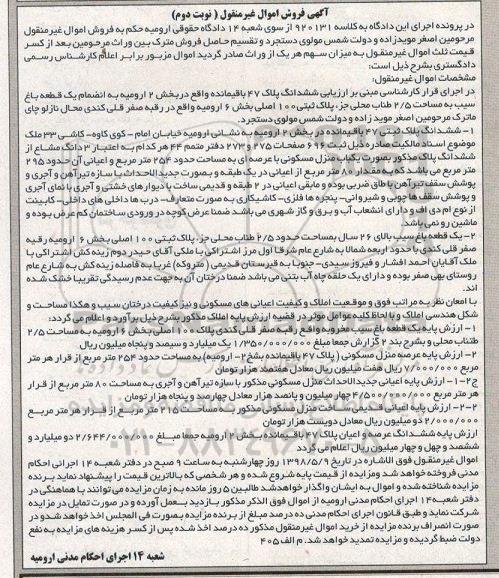 آگهی فروش اموال غیرمنقول ( نوبت دوم)
در پرونده اجرای این دادگاه به کلاسه ۹۲۰۱۳۱ از سوی شعبه ۱۴ دادگاه حقوقی ارومیه حکم به فروش اموال غیرمنقول
مرحومین اصغر مویدزاده و دولت شمس مولوی دستجرد و تقسیم حاصل فروش مترک بین وراث مرحومین بعد از کسر
قیمت ثلث اموال غیرمنقول به میزان سهم هر یک از وراث صادر گردید اموال مزبور برابر اعلام کارشناس رسمی
دادگستری بشرح ذیل است:
مشخصات اموال غیرمنقول:
در اجرای قرار کارشناسی مبنی بر ارزیابی ششدانگ پلاک ۴۷ باقیمانده واقع در بخش ۲ ارومیه به انضمام یک قطعه باغ
سیب به مساحت ۲/۵ طناب محلی جز، پلاک ثبتی ۱۰۰ اصلی بخش ۶ ارومیه واقع در رقبه صفر قلی کندی محال نازلو چای
ماترک مرحومین اصغر موید زاده و دولت شمس مولوی دستجرد.
۱- ششدانگ پلاک ثبتی ۴۷ باقیمانده در بخش ۲ ارومیه به نشانی ارومیه خیابان امام - کوی کاوه- کاشی ۳۳ ملک
موضوع اسناد مالکیت صادره ذیل ثبت ۶۹۶ صفحات ۲۷۵ و ۲۷۲ دفتر متمم ۴۴ هر کدام به اعتبار ۳ دانگ مشاع از
ششدانگ پلاک مذکور بصورت یکباب منزل مسکونی با عرصه ای به مساحت حدود ۲۵۴ متر مربع و اعیانی آن حدود ۲۹۵
متر مربع می باشد که به مقدار ۸۰ متر مربع از اعیانی در یک طبقه و بصورت جدید الاحداث با سازه تیرآهن و آجری و
پوشش سقف تیرآهن با طاق ضربی بوده و مابقی اعیانی در ۲ طبقه و قدیمی ساخت با دیوارهای خشتی و آجری با نمای آجری
و پوشش سقف ها چوبی و شیروانی- پنجره ها فلزی- کاشیکاری به صورت متعارف- درب ها داخلی های داخلی- کابینت
از نوع ام دی اف و دارای انشعاب آب و برق و گاز شهری می باشد ضمنا عرض کوچه در ورودی ساختمان کم عرض بوده و
ماشین رو نمی باشد
۲- یک قطعه باغ سیب بالای ۲۶ سال بمساحت حدود ۲/۵ طناب محلی جز، پلاک ثبتی ۱۰۰ اصلی بخش ۶ ارومیه رقبه
صفر قلی کندی با حدود اربعه شمالا به شارع عام شرقا اول مرز اشتراکی با ملکی آقای حیدر دوم زینه کش اشتراکی با
ملک آقایان احمد افشار و فیروز سیدی- جنوبا به قبرستان قدیمی ( متروکه) غربا به فاصله زینه کش به شارع عام
روستای بهی صفر بوده و دارای یک حلقه چاه آب بتنی می باشد ضمنا درختان آن به جهت عدم رسیدگی تقریبا خشک شده
اند.
با امعان نظر به مراتب فوق و موقعیت املاک و کیفیت اعیانی های مسکونی و نیز کیفیت درختان سیب و هکذا مساحت و
شکل هندسی املاک و با لحاظ کلیه عوامل موثر در قضیه ارزش پایه املاک مذکور بشرح ذیل برآورد و اعلام می گردد:
۱- ارزش پایه یک قطعه باغ سیب مخروبه واقع در رقبه صفر قلی کندی پلاک ۱۰۰ اصلی بخش ۶ ارومیه به مساحت ۲/۵
طناب محلی و بشرح بند ۲ گزارش جمعا مبلغ ۱/۳۵۰/۰۰۰/۰۰۰ یک میلیارد و سیصد و پنجاه میلیون ریال
۲- ارزش پایه عرصه منزل مسکونی ( پلاک ۴۷ باقیمانده بخش ۲- ارومیه) به مساحت حدود ۲۵۴ متر مربع از قرار هر متر
مربع ۷/۰۰۰/۰۰۰ ریال هفت میلیون ریال معادل هفتصد هزار تومان
ج۲-۱- ارزش پایه اعیانی جدیدالاحداث منزل مسکونی مذکور با سازه تیرآهن و آجری به مساحت ۸۰ متر مربع از قرار
هر متر مربع ۴/۵۰۰/۰۰۰ چهار میلیون و پانصد هزار معادل چهارصد و پنجاه هزار تومان
۲-۲- ارزش پایه اعیانی قدیمی ساخت منزل مسکونی مذکور به مساحت ۲۱۵ متر مربع از قرار هر متر مربع
۲/۰۰۰/۰۰۰ دو میلیون ریال معادل دویست هزار تومان
ارزش پایه ششدانگ عرصه و اعیان پلاک ۴۷ باقیمانده بخش ۲ ارومیه جمعا مبلغ ۲/۶۴۴/۰۰۰/۰۰۰ دو میلیارد و
ششصد و چهل و چهار میلیون ریال اعلام می گردد
اموال غیر منقول فوق الاشاره در تاریخ ۱۳۹۸/۵/۹ روز چهارشنبه به ساعت ۹ صبح در دفتر شعبه ۱۴ اجرائی احکام
مدنی فروخته خواهد شد ومزایده از قیمت پایه شروع شده و هر شخصی که بالاترین قیمت را پیشنهاد نماید برنده
مزایده شناخته شده و اموال به ایشان واگذار خواهد شد طالبین ۵ روز مانده به زمان مزایده می توانند با هماهنگی در
دفتر شعبه ۱۴ اجرای احکام مدنی ارومیه از اموال فوق الذکر مذکور بازدید بعمل آورده و در صورت تمایل در مزایده
شرکت نماید و طبق قانون اجرای احکام مدنی ده درصد مبلغ از برنده مزایده بصورت فی المجلس اخذ خواهد شدو در
صورت انصراف برنده مزایده از خرید اموال غیر منقول مذکور ده درصد اخذ شده پس از کسر هزینه های مزایده به نفع
دولت ضبط گردیده و مزایده تمدید خواهد شد. م الف ۴۰۵
شعبه ۱۴ اجرای احکام مدنی ارومیه